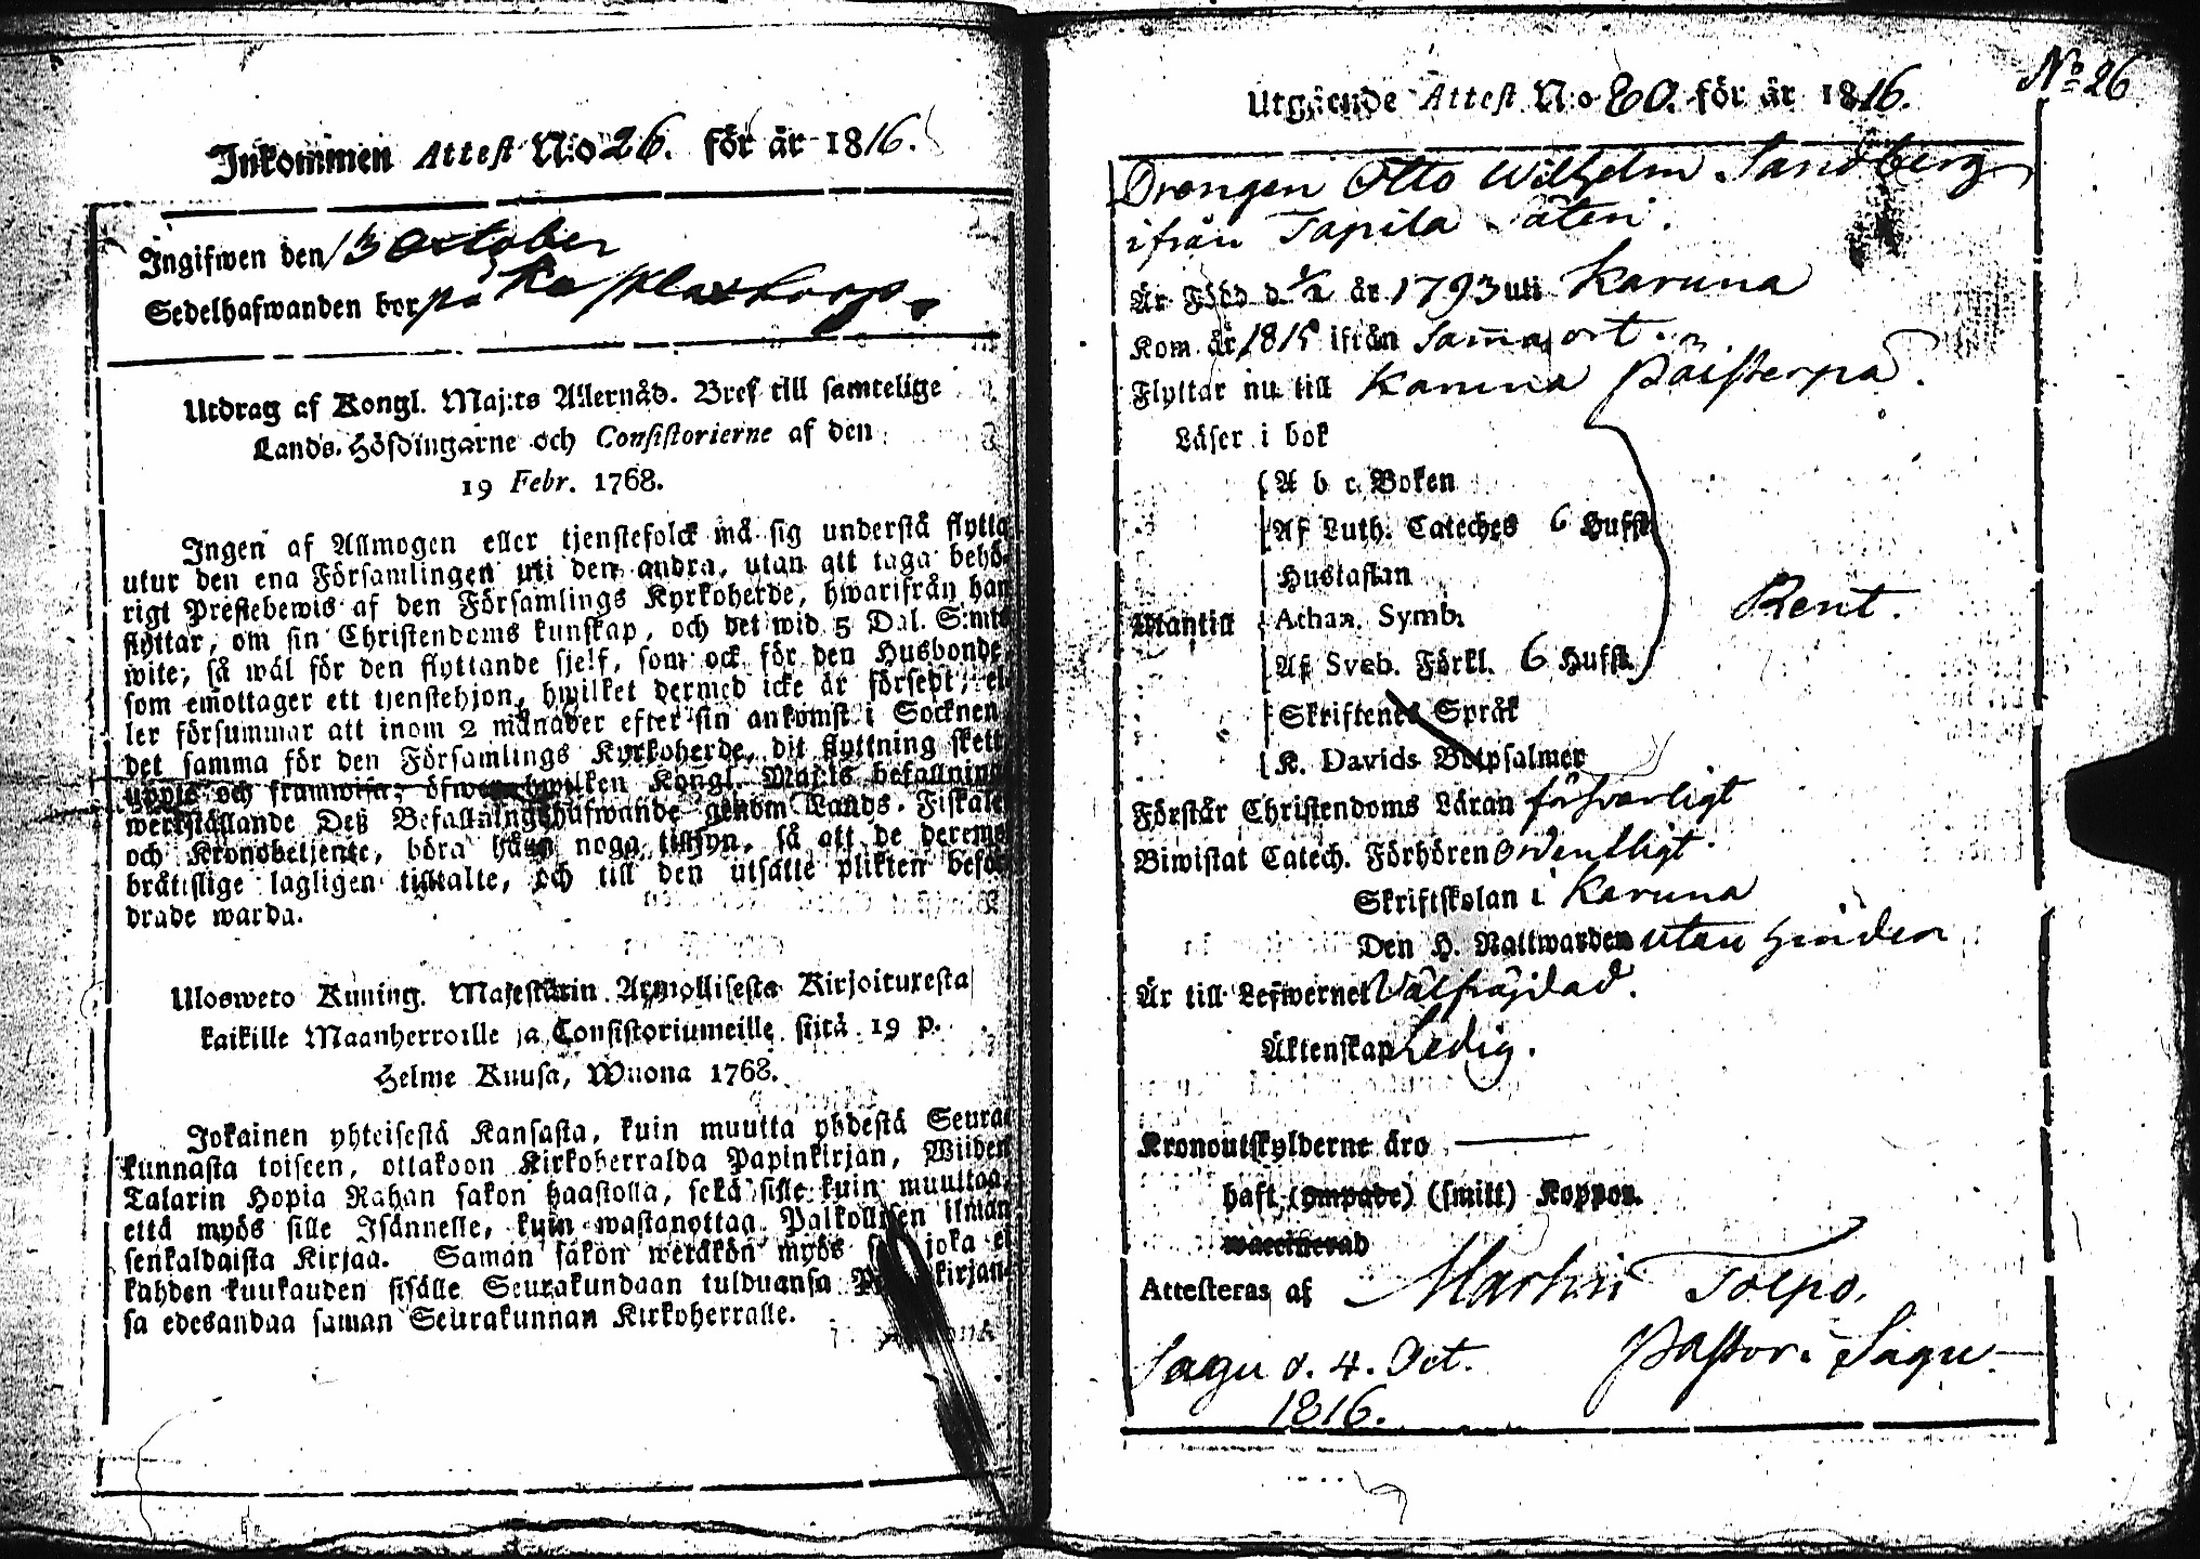 Inkommen Attest N:o 26. för år 1816.
Ingifwen den 13 October
Sedelhafwanden bor på
Utdrag af Kongl. Maj:ts Allernåd. Bref till samtelige
Lands-Höfdingarne och Consistorierne af den
19 Febr. 1768.
Ingen af Allmogen eller tjenstefolck må sig understå flytta
utur den ena Församlingen uti den andra, utan att taga behö-
rigt Prestebewis af den Församlings Kyrkoherde, hwarifrån han
flyttar, om sin Christendoms kunskap, och det wid 5 Dal. S:mts
wite, så wäl för den flyttande sjelf, som ock för den Husbonde,
som emottager ett tjenstehjon, hwilket dermed icke är försedt, el-
ler försummar att inom 2 månader efter sin ankomst i Socknen
det samma för den Församlings Kyrkoherde, dit flyttning skett,
uppte och framwisa; öfwer hwilken Kongl. Maj:ts befallning
werkställande Deß Befallningshafwande genom Lands-Fiskaler
och Kronobetjente, böra hafwa noga tillsyn, så att de deremot
bråttslige lagligen tilltalte, och till den utsatte plikten befor-
drade warda.
Ulosweto Kuning. Majestätin Armollisesta Kirjoituxesta
kaikille Maanherroille ja Consistoriumeille siitä 19 p.
Helme Kuusa, Wuona 1768.
Jokainen yhteisestä Kansasta, kuin muutta yhdestä Seura-
kunnasta toiseen, ottakoon Kirkoherralda Papinkirjan, Wiiden
Talarin Hopia Rahan sakon haastolla, sekä sille kuin muuttaa,
että myös sille Isännelle, kuin wastanottaa Palkollisen ilman
senkaldaista Kirjaa. Saman sakon wetäkön myös se joka ei
kahden kuukauden sisälle Seurakundaan tulduansa Papinkirjan-
sa edesandaa saman Seurakunnan Kirkoherralle.
No 26
Utgående Attest N:o 80. för år 1816.
Drengen Otto Wilhelm Sandberg
ifrån Tapila Säteri.
Är Född d. år 1793 uti Karuna
Kom år 1815 ifrån Samma ort.
Flyttar nu till Karuna Päisterpä.
Läser i bok
A b c Boken
Af Luth. Cateches 6 Hufst.
Hustaflan
Utantill Athan. Symb. Rent.
Af Sveb. Förkl. 6 Hufst.
Skriftenes Språk
K. Davids Botpsalmer
Förstår Christendoms Läran försvarligt
Biwistat Catech. Förhören ordentligt
Skriftskolan i Karuna
Den H. Nattwarden utan hinder
Är till Lefwernet Välfräjdad.
Äktenskap Ledig.
Kronoutskylderne äro —
haft (ympade) (smitt) Koppor.
waccinerad
Attesteras af Martin Tolpo.
Pastor i Sagu
Sagu d. 4. Oct.
1816.